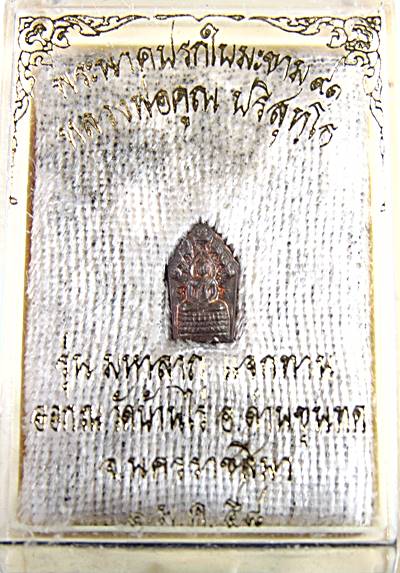 พระนาคปรกใบมะขาม ๙๑
หลวงพ่อคูณ ปริสุทฺโธ
รุ่น มหาลาภ แจกทาน
ออก ณ วัดบ้านไร่ อ.ด่านขุนทด
จ.นครราชสีมา